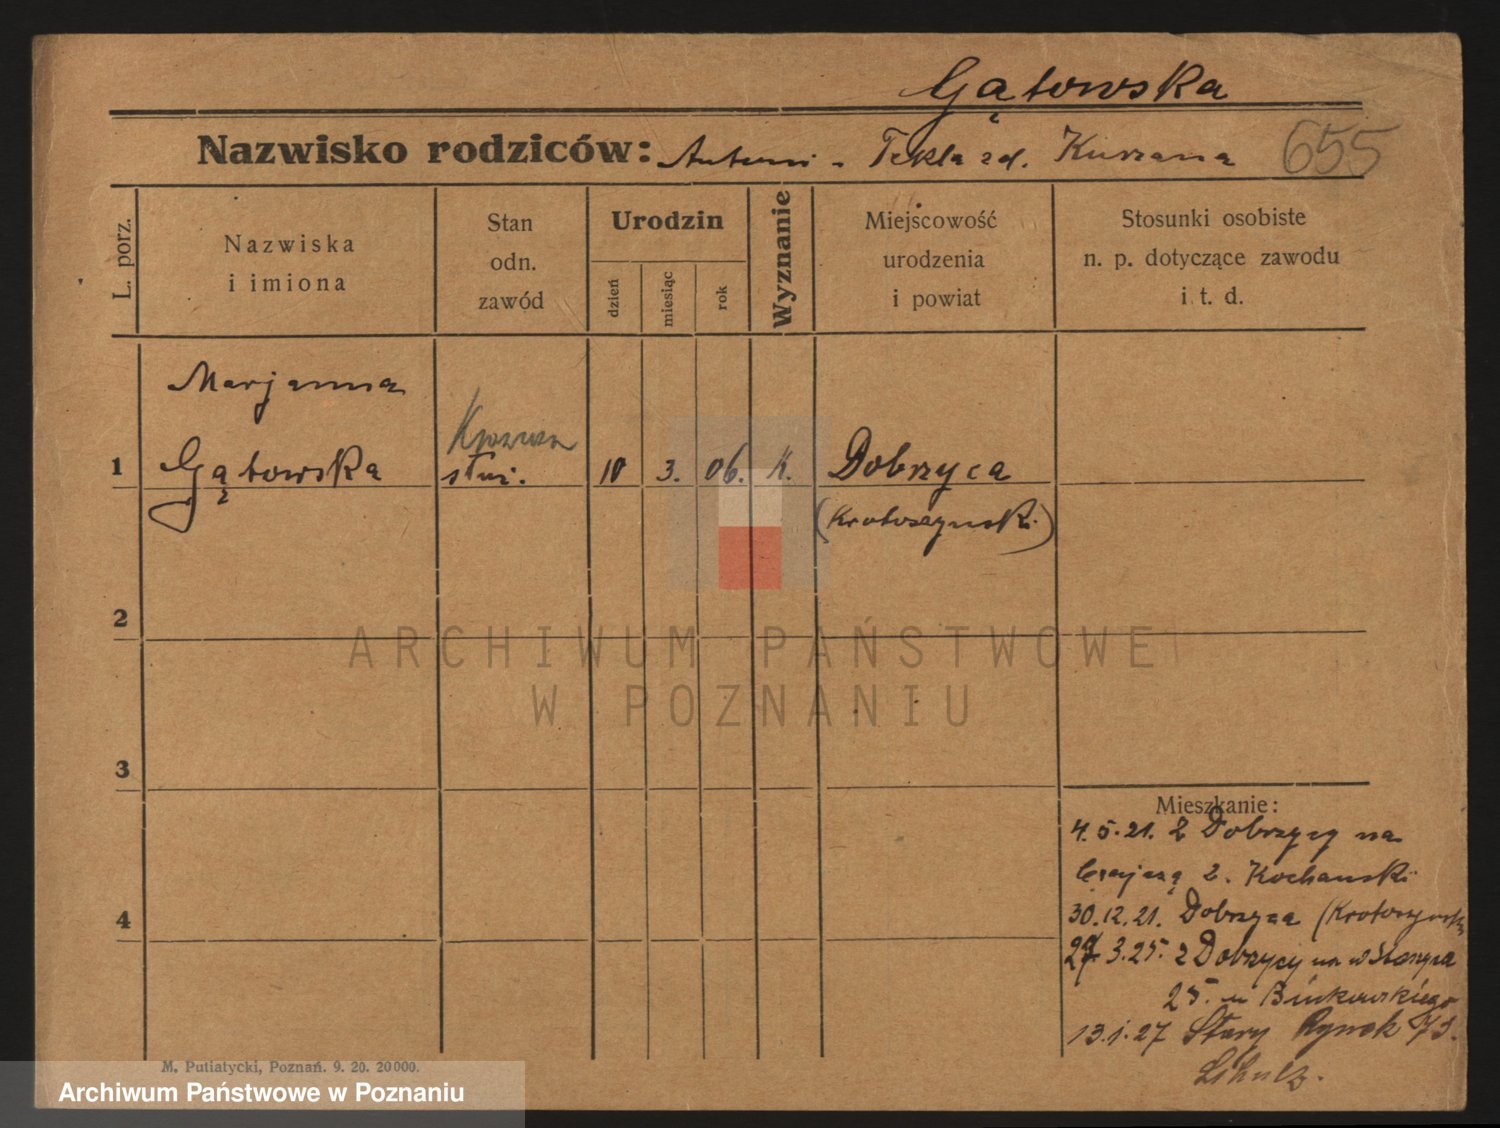 Gątowska
Nazwisko rodziców: Antoni - Tekla zd. Kurzana 655
L. porz.
Nazwiska
i imiona
Stan
odn.
zawód
Urodzin
dzień
miesiąc
rok
Wyznanie
Miejscowość
urodzenia
i powiat
Stosunki osobiste
n. p. dotyczące zawodu
i t. d.
Marjanna
1 Gątowska służ. 10 3. 06. K. Dobrzyca
(Krotoszyński)
2
3
4
Mieszkanie:
4.5.21. z Dobrzycy na
2. Kochanski
30.12.21. Dobrzyca (Krotoszyński
3.25. z Dobrzycy na
25. u Binkowskiego
13.1.27 Stary Rynek
M. Putiatycki, Poznań. 9. 20. 20000.
ARCHIWUM PAŃSTWOWE
W POZNANIU
Archiwum Państwowe w Poznaniu